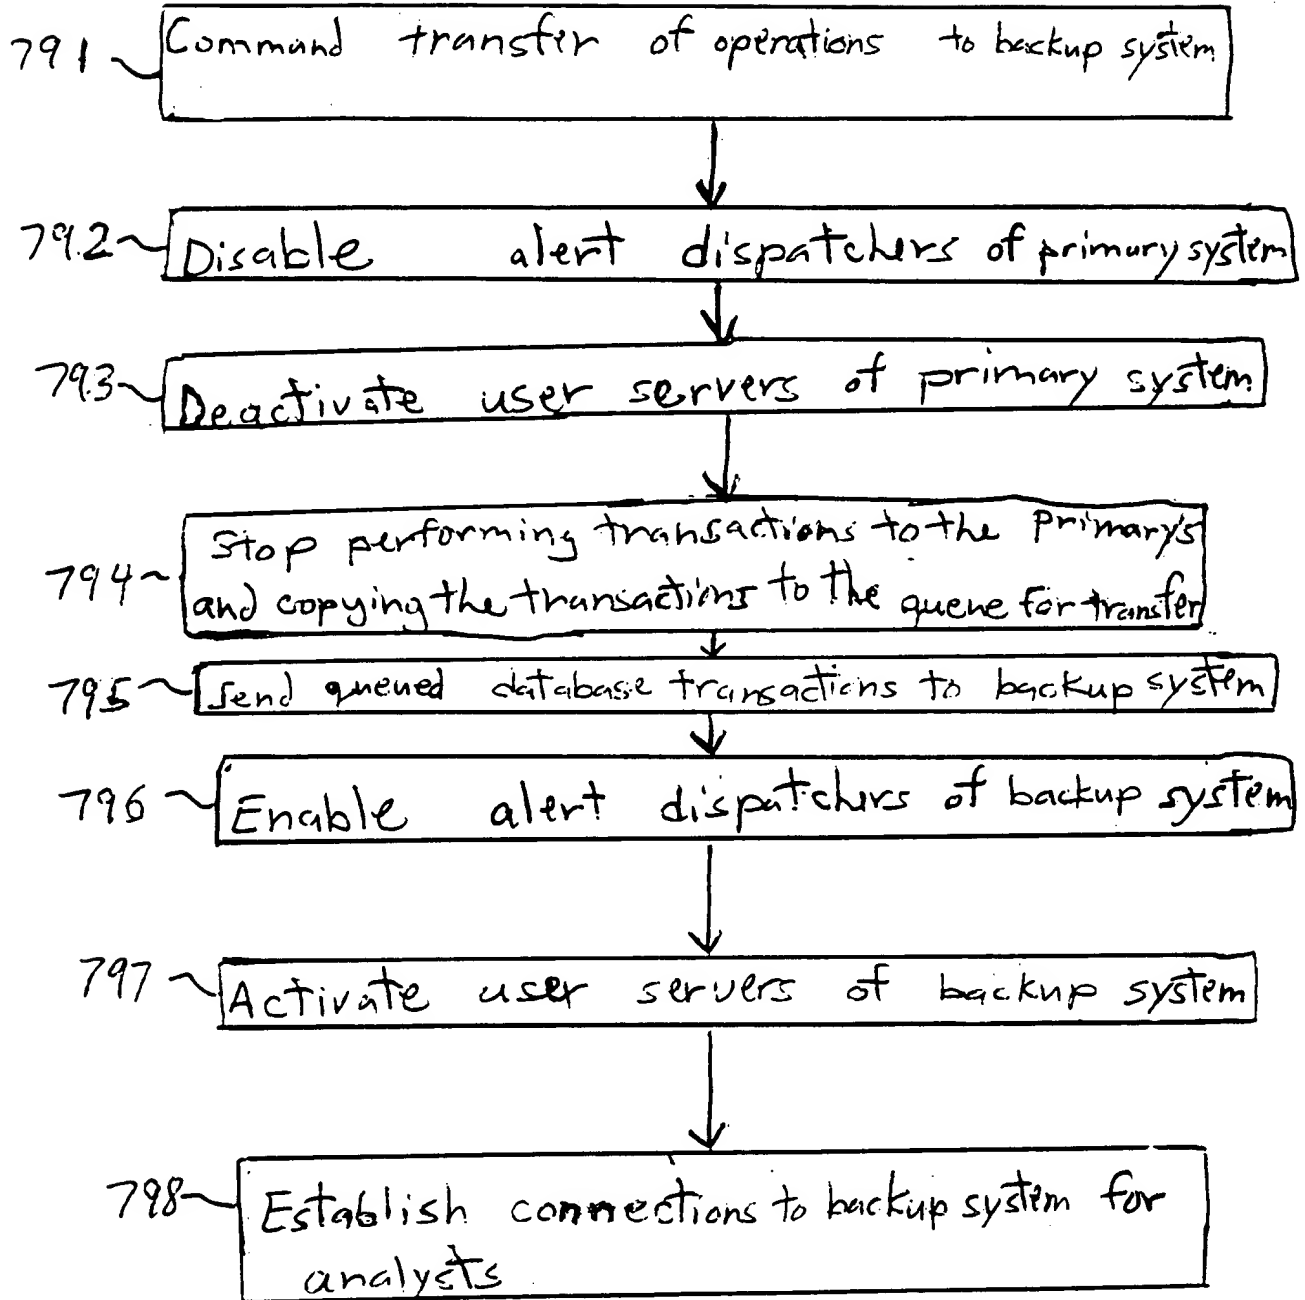 791 Command transfer of operations to backup system
792 Disable alert dispatchers of primary system
793 Deactivate user servers of primary system
Stop performing transactions to the Primary's
794 and copying the transactions to the queue for transfer
795 Send queued database transactions to backup system
796 Enable alert dispatchers of backup system
797 Activate user servers of backup system
798 Establish connections to backup system for
analysts